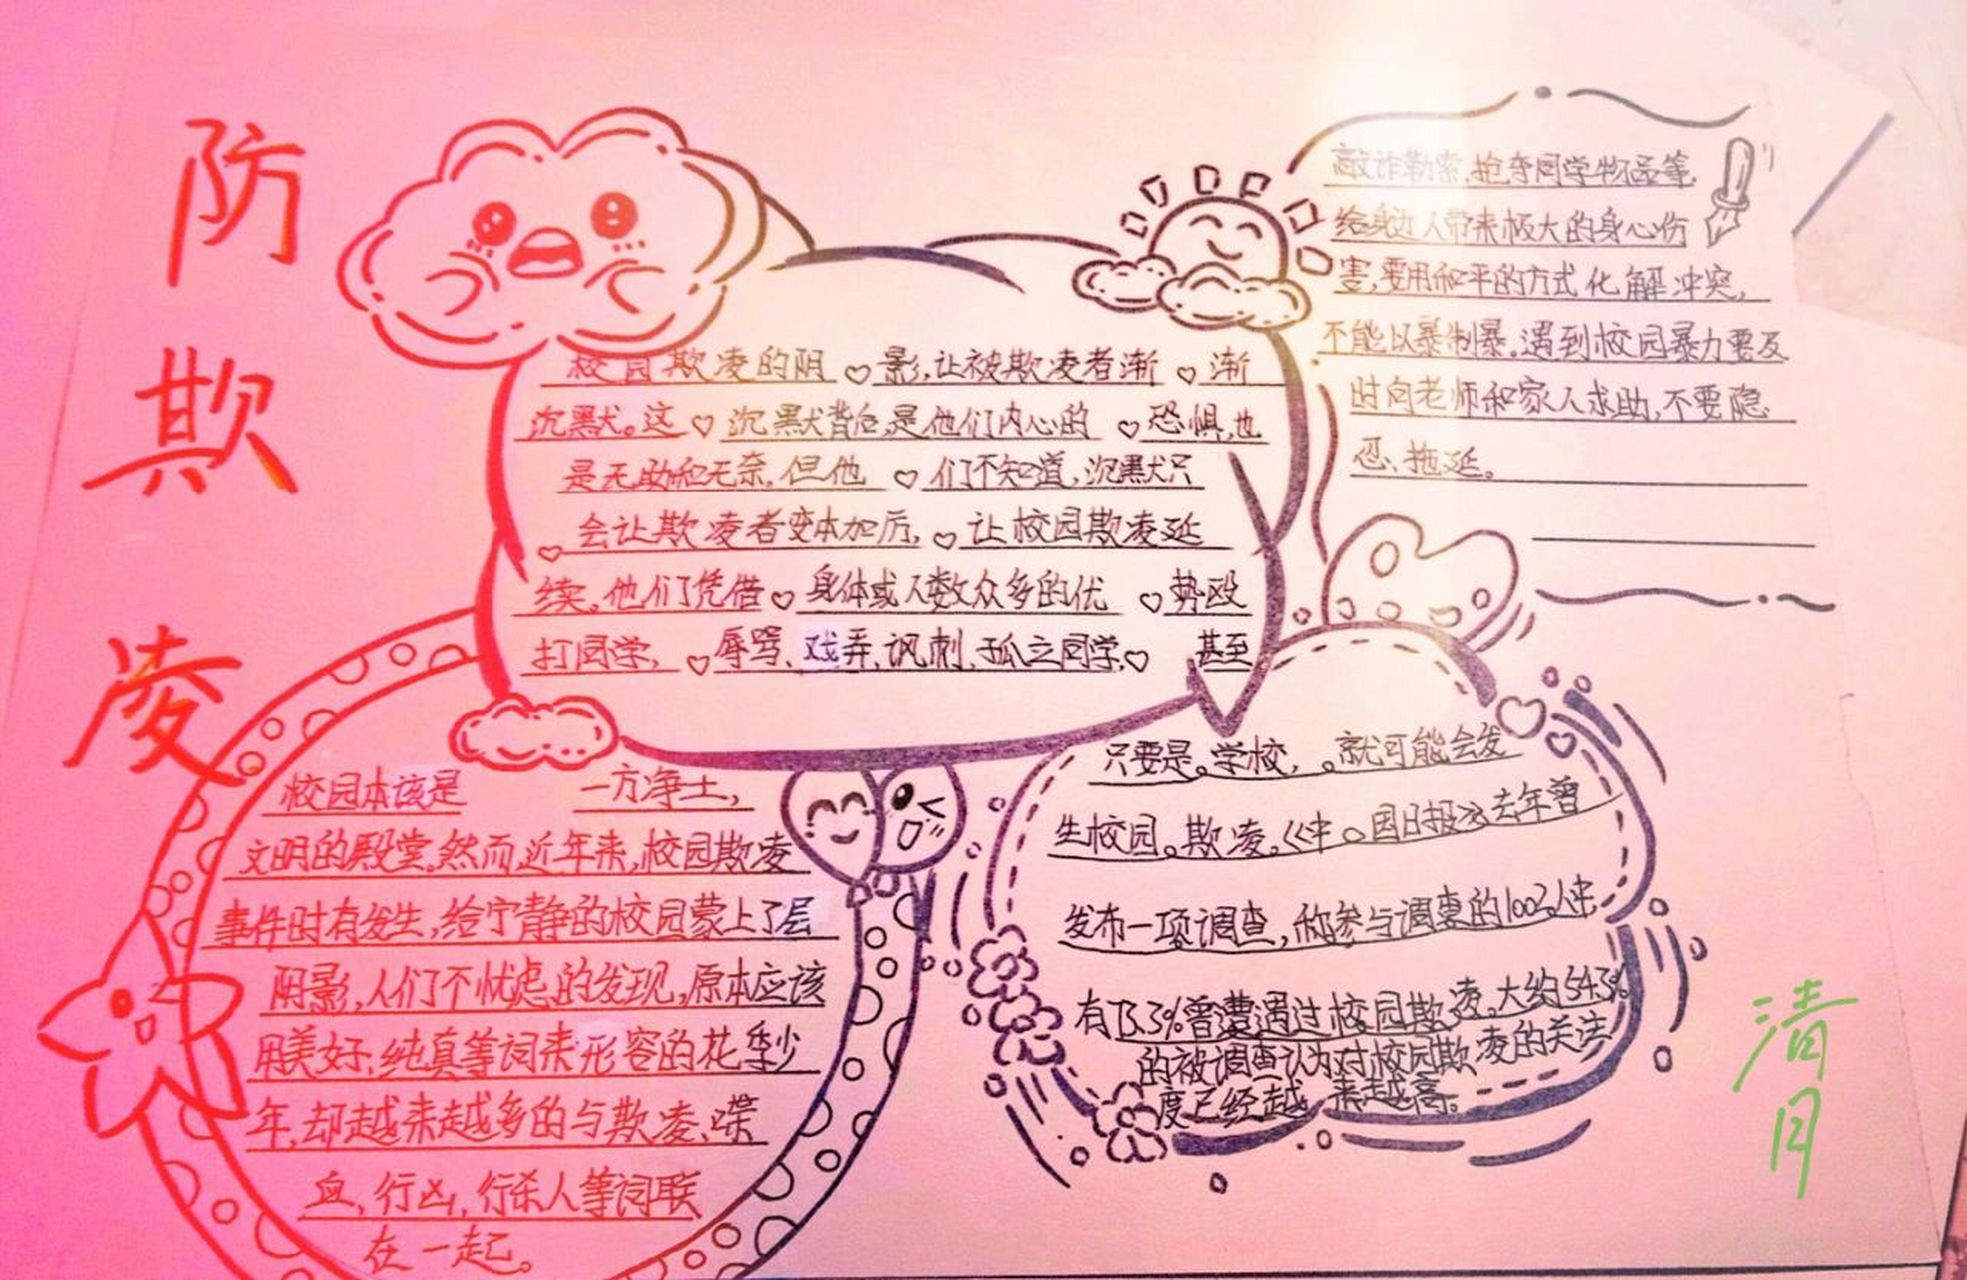 防欺凌
校园欺凌的阴♡影,让被欺凌者渐♡渐
沉默。这♡沉默背后,是他们内心的♡恐惧,也
是无助和无奈。但他♡们不知道,沉默只
♡会让欺凌者变本加厉,♡让校园欺凌延
续。他们凭借♡身体或人数众多的优♡势殴
打同学,♡辱骂、戏弄、讽刺、孤立同学,♡甚至
敲诈勒索,抢夺同学物品等,
给身边人带来极大的身心伤
害,要用和平的方式化解冲突,
不能以暴制暴。遇到校园暴力要及
时向老师和家人求助,不要隐
忍、拖延。
校园本该是一方净土,
文明的殿堂。然而近年来,校园欺凌
事件时有发生,给宁静的校园蒙上了层
阴影,人们不忧虑的发现,原本应该
用美好、纯真等词来形容的花季少
年,却越来越多的与欺凌、喋
血,行凶,行杀人等词联
在一起。
只要是。学校,。就可能会发
生校园。欺凌。《中。国日报》去年曾
发布一项调查,称参与调查的1003人中
有73.3%曾遭遇过校园欺凌,大约54.3%
的被调查认为对校园欺凌的关注
度已经越来越高。
清月